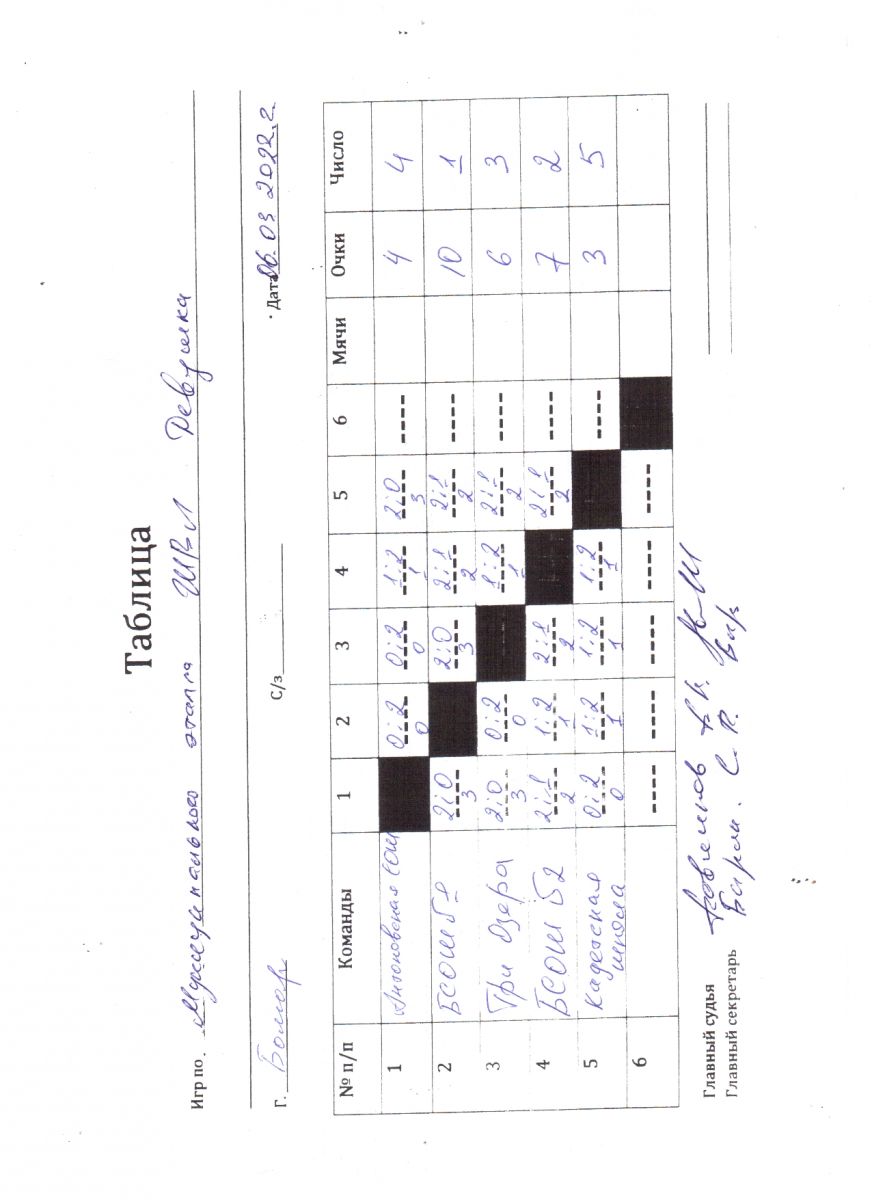 Таблица
Игр по. Муниципального этапа ШВЛ Девушки
Г. Болгар С/з Дата 06.03 2022.г
№ п/п Команды 1 2 3 4 5 6 Мячи Очки Число
1 Антоновская сош 0:2 0 0:2 0 1:2 1 2:0 3 ---- 4 4
2 БСОШ №1 2:0 3 2:0 3 2:1 2 2:1 2 ---- 10 1
3 Три Озера 2:0 3 0:2 0 1:2 1 2:1 2 ---- 6 3
4 БСОШ №2 2:1 2 1:2 1 2:1 2 2:1 2 ---- 7 2
5 Кадетская школа 0:2 0 1:2 1 1:2 1 1:2 1 ---- 3 5
6 ---- ---- ---- ---- ----
Главный судья
Главный секретарь С.Р.